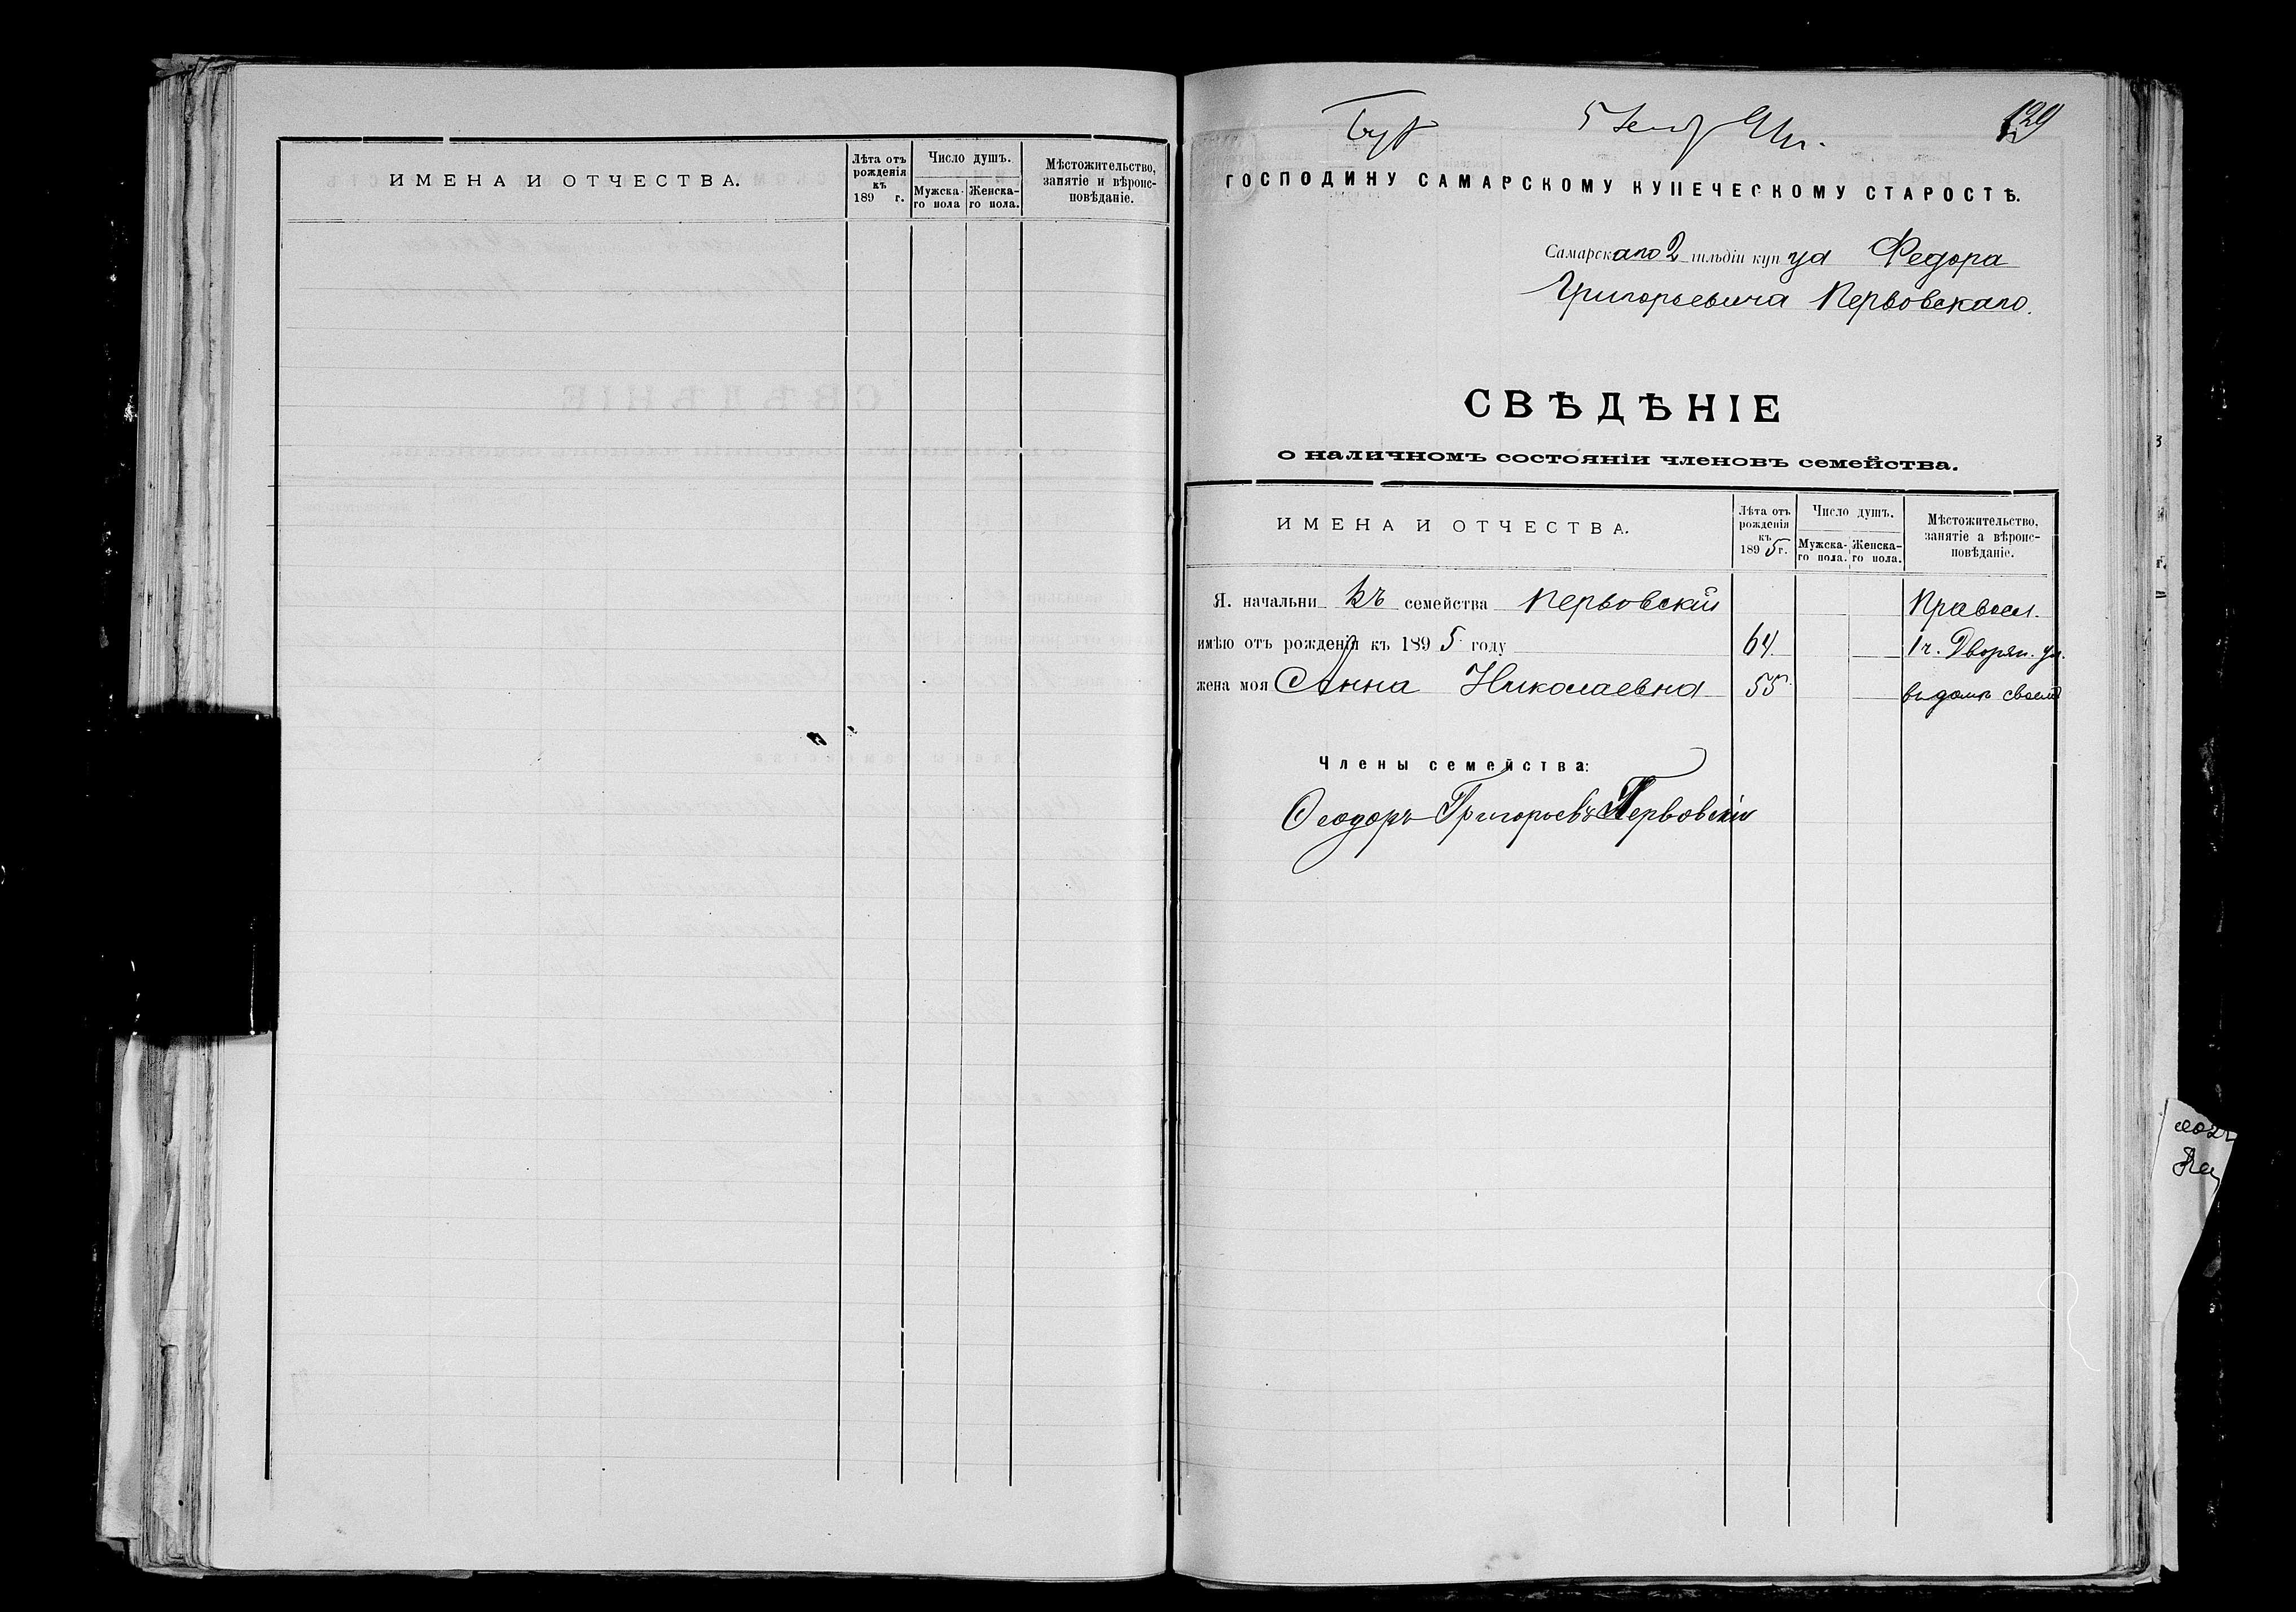 ИМЕНА И ОТЧЕСТВА.
Лѣта отъ рожденія къ 189 г.
Число душъ.
Мужска-го пола
Женска-го пола.
Мѣстожительство, занятіе и вѣроис-повѣданіе.
129
ГОСПОДИНУ САМАРСКОМУ КУПЕЧЕСКОМУ СТАРОСТѢ.
Самарскаго 2 гильдіи купца Федора
Григорьевича Первовскаго.
СВѢДѢНІЕ
о наличномъ состояніи членовъ семейства.
ИМЕНА И ОТЧЕСТВА.
Лѣта отъ рожденія къ 1895 г.
Число душъ.
Мужска-го пола.
Женска-го пола.
Мѣстожительство, занятіе а вѣроис-повѣданіе.
Я. начальникъ семейства Первовскій Правосл.
имѣю отъ рожденія къ 1895 году 64 1 ч. Дворян. ул.
жена моя Анна Николаевна 55 въ домѣ своемъ
Члены семейства:
Ѳеодоръ Григорьевъ Первовскій